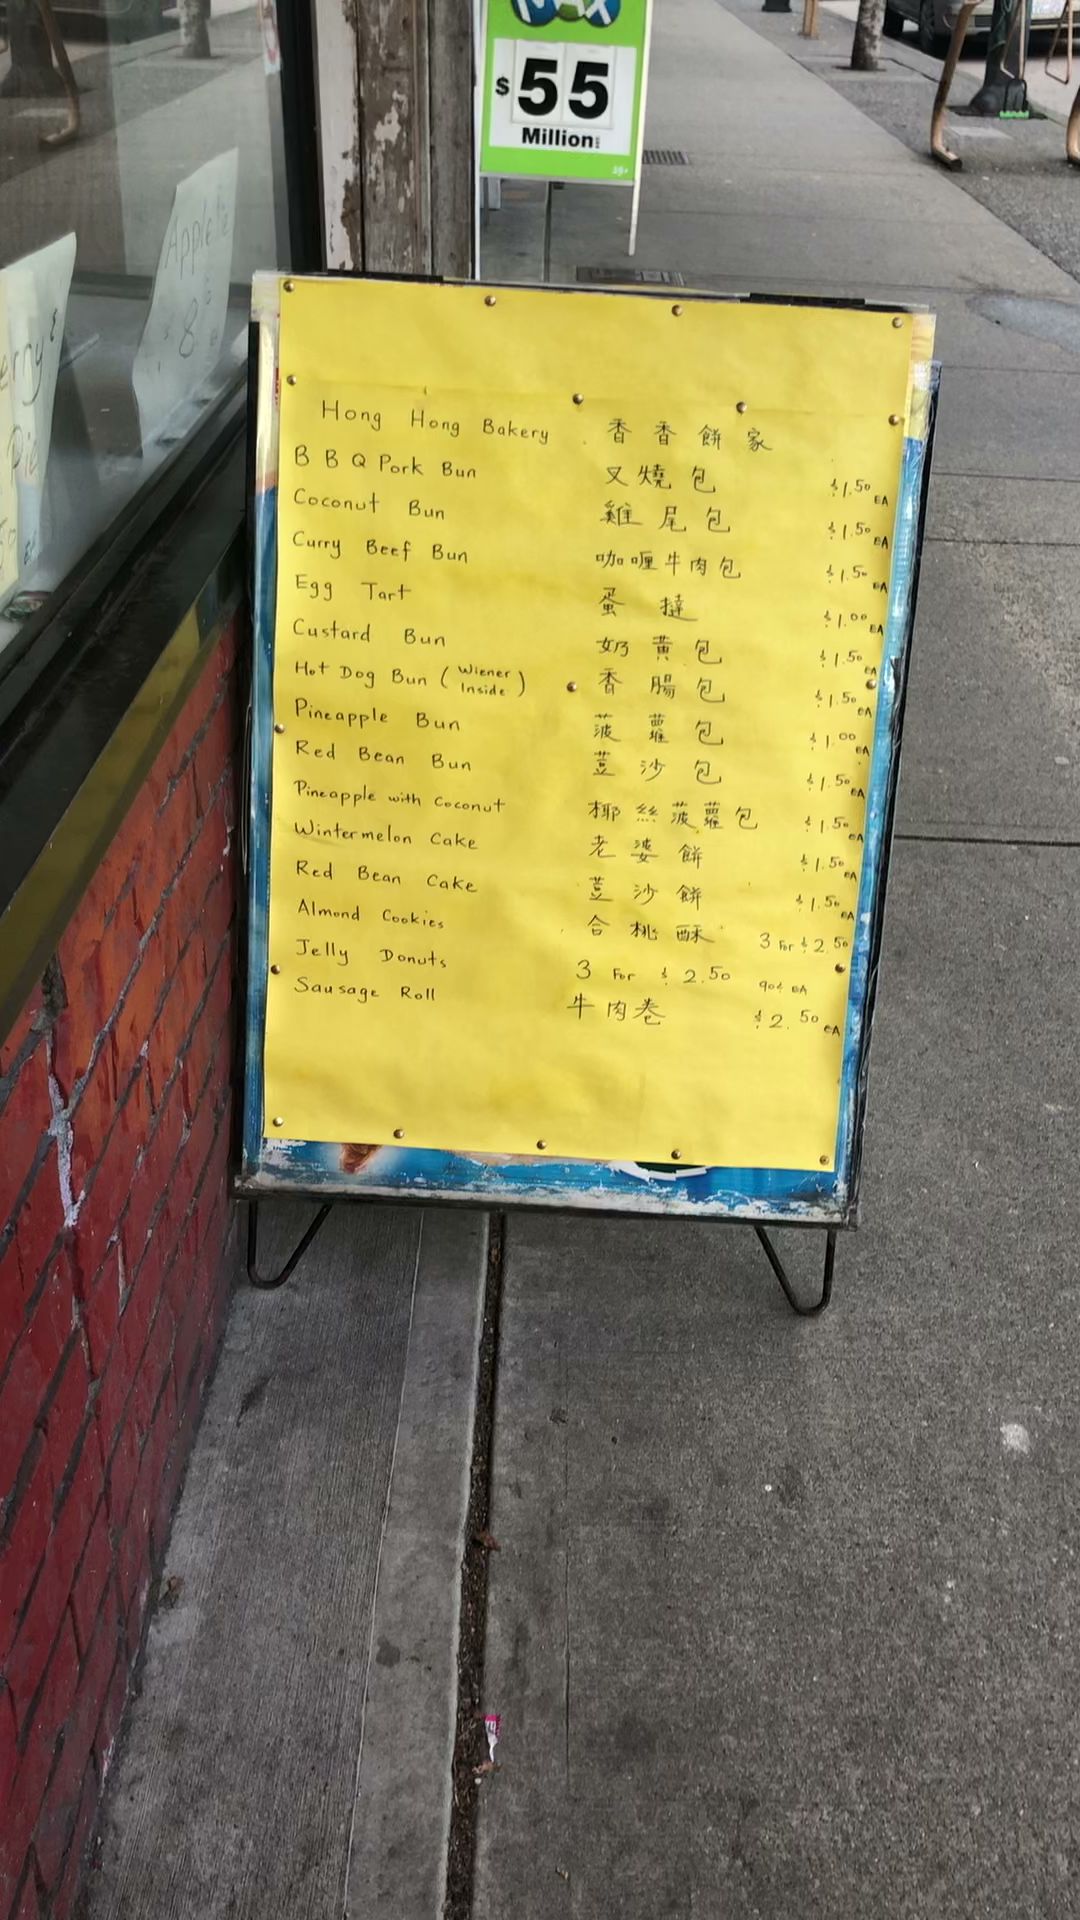 MAX
$55
Million
19+
Apple Pie
$8
Hong Hong Bakery 香香餅家
B B Q Pork Bun 叉燒包 $1.50 EA
Coconut Bun 雞尾包 $1.50 EA
Curry Beef Bun 咖喱牛肉包 $1.50 EA
Egg Tart 蛋撻 $1.00 EA
Custard Bun 奶黃包 $1.50 EA
Hot Dog Bun (Wiener Inside) 香腸包 $1.50 EA
Pineapple Bun 菠蘿包 $1.00 EA
Red Bean Bun 荳沙包 $1.50 EA
Pineapple with Coconut 椰絲菠蘿包 $1.50 EA
Wintermelon Cake 老婆餅 $1.50 EA
Red Bean Cake 荳沙餅 $1.50 EA
Almond Cookies 合桃酥 3 For $2.50
Jelly Donuts 3 For $2.50 90¢ EA
Sausage Roll 牛肉卷 $2.50 EA